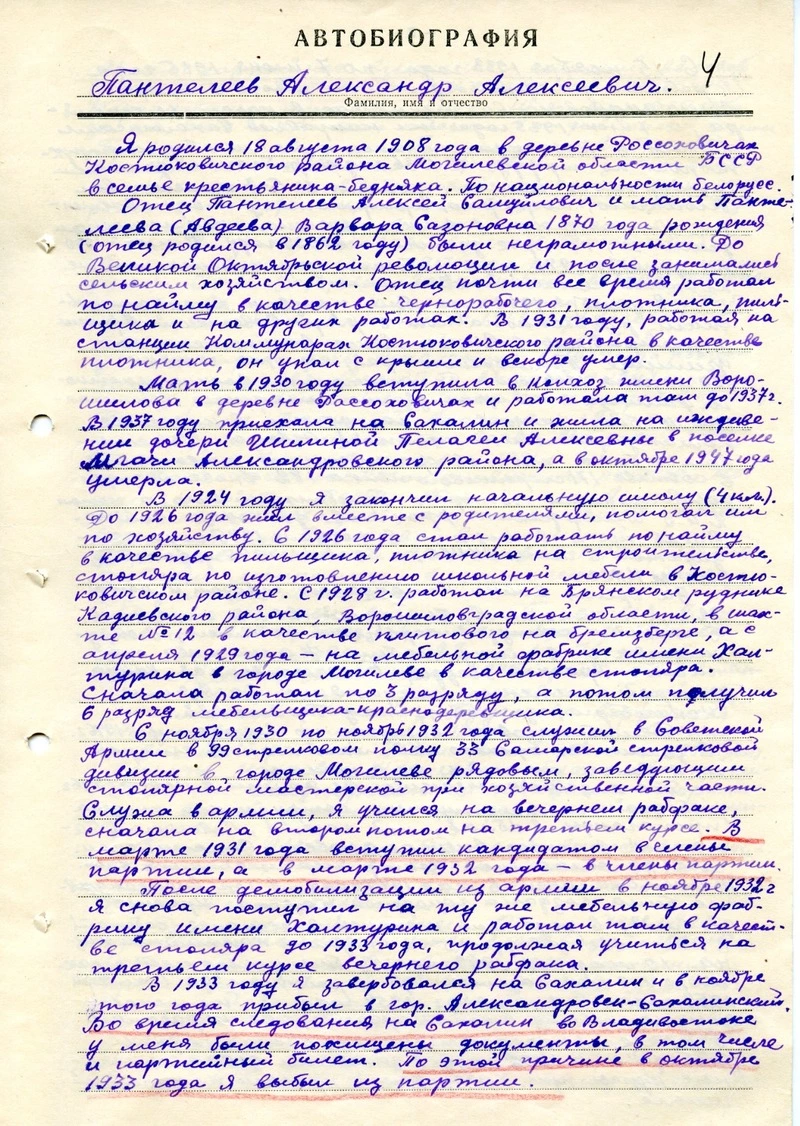 АВТОБИОГРАФИЯ
4
Пантелеев Александр Алексеевич.
Фамилия, имя и отчество
Я родился 18 августа 1908 года в деревне Россоховичах
Костюковичского района Могилевской области БССР
в семье крестьянина-бедняка. По национальности белорусс.
Отец Пантелеев Алексей Самуйлович и мать Панте-
леева (Авдеева) Варвара Сазоновна 1870 года рождения
(отец родился в 1862 году) были неграмотными. До
Великой Октябрьской революции и после занимались
сельским хозяйством. Отец почти все время работал
по найму в качестве чернорабочего, плотника, пиль-
щика и на других работах. В 1931 году, работая на
станции Коммунарах Костюковичского района в качестве
плотника, он упал с крыши и вскоре умер.
Мать в 1930 году вступила в колхоз имени Воро-
шилова в деревне Рассоховичах и работала там до 1937 г.
В 1937 году приехала на Сахалин и жила на иждиве-
нии дочери Шилиной Пелагеи Алексевны в поселке
Мгачи Александровского района, а в октябре 1947 года
умерла.
В 1924 году я закончил начальную школу (4 кл.).
До 1926 года жил вместе с родителями, помогал им
по хозяйству. С 1926 года стал работать по найму
в качестве пильщика, плотника на строительстве,
столяра по изготовлению школьной мебели в Костю-
ковичском районе. С 1928 г. работал на Брянском руднике
Кадиевского района, Ворошиловградской области, в шах-
те № 12 в качестве плитового на бремзберге, а с
апреля 1929 года – на мебельной фабрике имени Хал-
турина в городе Могилеве в качестве столяра.
Сначала работал по 3 разряду, а потом получил
6 разряд мебельщика-краснодеревщика.
С ноября 1930 по ноябрь 1932 года служил в Советской
Армии в 99 стрелковом полку 33 Самарской стрелковой
дивизии в городе Могилеве рядовым, заведующим
столярной мастерской при хозяйственной части.
Служа в армии, я учился на вечернем рабфаке,
сначала на втором потом на третьем курсе. В
марте 1931 года вступил кандидатом в члены
партии, а в марте 1932 года – в члены партии.
После демобилизации из армии в ноябре 1932 г
я снова поступил на ту же мебельную фаб-
рику имени Халтурина и работал там в качест-
ве столяра до 1933 года, продолжая учиться на
третьем курсе вечернего рабфака.
В 1933 году я завербовался на Сахалин и в ноябре
этого года прибыл в гор. Александровск-Сахалинский.
Во время следования на Сахалин во Владивостоке
у меня были похищены документы, в том числе
и партийный билет. По этой причине в октябре
1933 года я выбыл из партии.